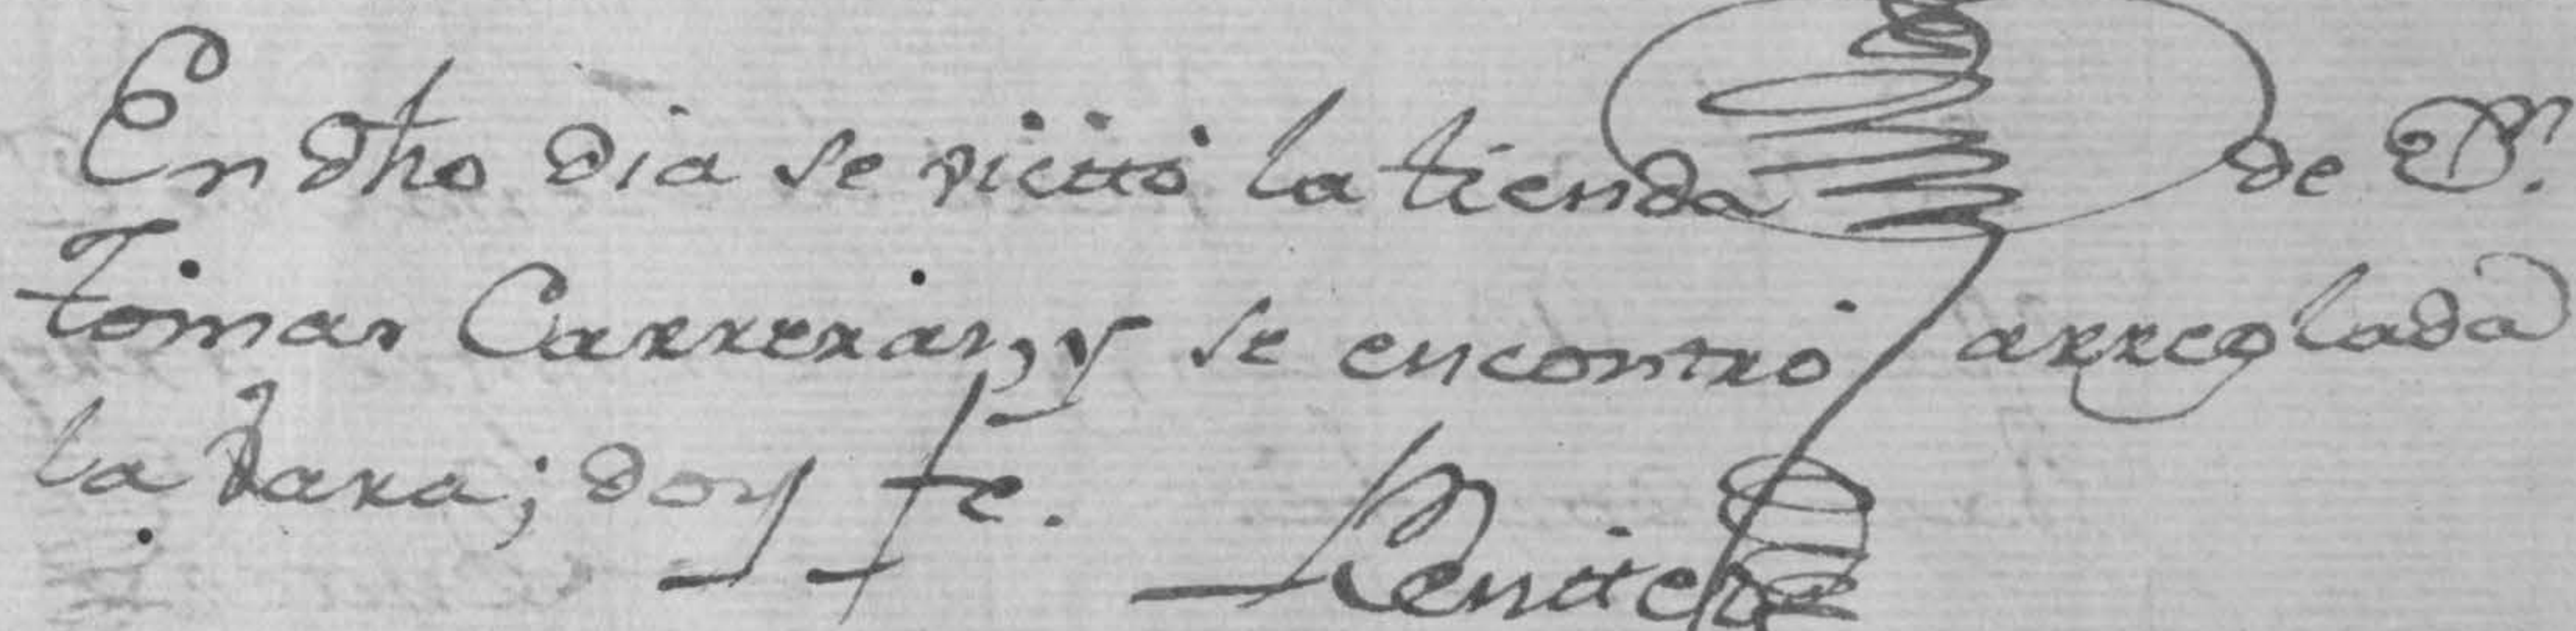 En dho dia se vicitó la tienda de Dn.
Tomas Carreras, y se encontró arreglada
la bara; doy fe.